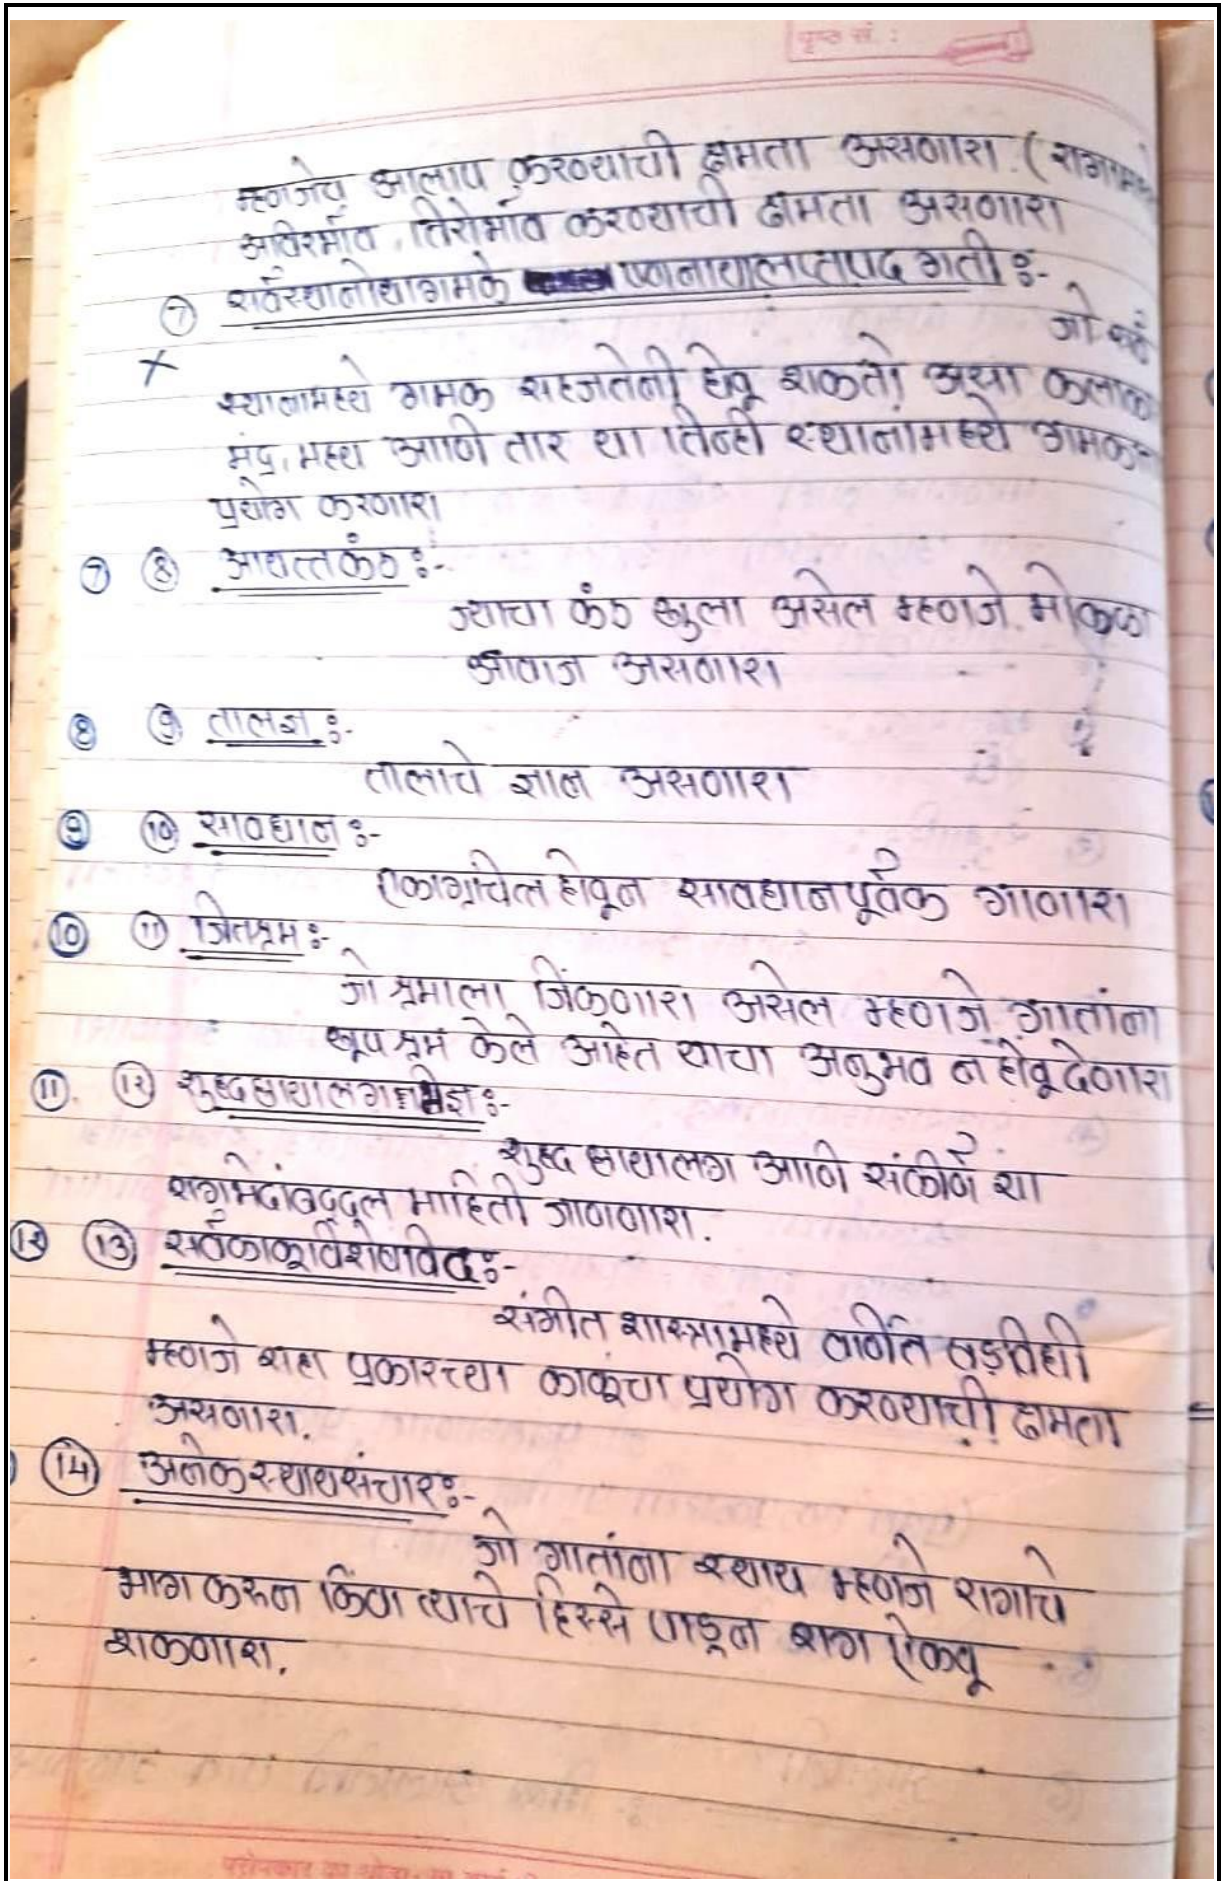 पृष्ठ सं. :
म्हणजेच आलाप करण्याची क्षमता असणारा. (
आविर्भाव, तिरोभाव करण्याची क्षमता असणारा
⑦ सर्वस्थानोथागमके ष्वनायालप्तपद गती :-
जो
×
स्थानामध्ये गमक सहजतेनी घेवू शकतो अश्या
मंद्र, मध्य आणि तार या तिन्ही स्थानांमध्ये
प्रयोग करणारा
⑦ ⑧ आयत्तकंठ :-
ज्याचा कंठ खुला असेल म्हणजे मोकळा
आवाज असणारा
⑧ ⑨ तालज्ञ :-
तालाचे ज्ञान असणारा
⑨ ⑩ सावधान :-
एकाग्रचित्त होवून सावधानपूर्वक गाणारा
⑩ ⑪ जितश्रम :-
जो श्रमाला जिंकणारा असेल म्हणजे गातांना
खूप श्रम केले आहेत याचा अनुभव न होवू देणारा
⑪. ⑫ शुद्धछायालगभिज्ञ :-
शुद्ध छायालग आणि संकीर्ण या
रागभेदांबद्दल माहिती जाणणारा.
⑫ ⑬ सर्वकाकूविशेषविद :-
संगीत शास्त्रामध्ये वर्णित षड्वीधी
म्हणजे सहा प्रकारच्या काकूंचा प्रयोग करण्याची क्षमता
असणारा.
⑭ अनेकस्थायसंचार :-
जो गातांना स्थाय म्हणजे रागाचे
भाग करून किंवा त्याचे हिस्से पाडून राग ऐकवू
शकणारा.